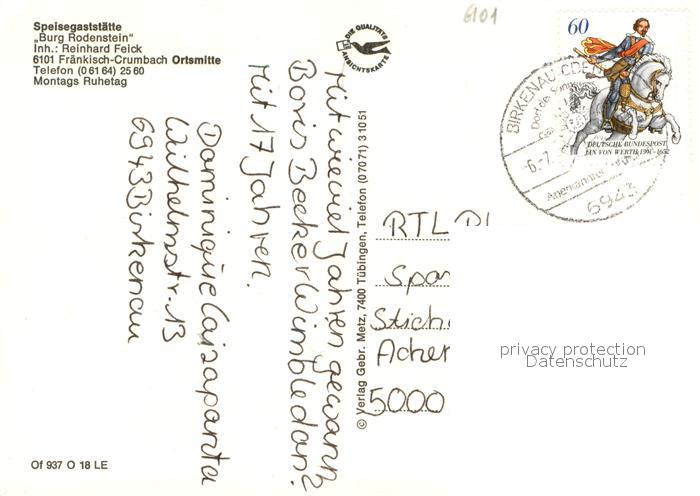 Speisegaststätte
„Burg Rodenstein"
Inh.: Reinhard Feick
6101 Fränkisch-Crumbach Ortsmitte
Telefon (0 61 64) 25 60
Montags Ruhetag
DIE QUALITÄTS
ANSICHTSKARTE
6101
60
DEUTSCHE BUNDESPOST
JAN VON WERTH 1591-1652
BIRKENAU, ODE
-6.-7.
Anerkannter
6943
Mit wieviel Jahren gewann
Boris Becker Wimbledon?
Mit 17 Jahren.
Dominique
Wilhelmstr. 13
6943 Birkenau
© Verlag Gebr. Metz, 7400 Tübingen, Telefon (07071) 31051
RTL Pl
Spar
Stich
Acher
5000
privacy protection
Datenschutz
Of 937 O 18 LE